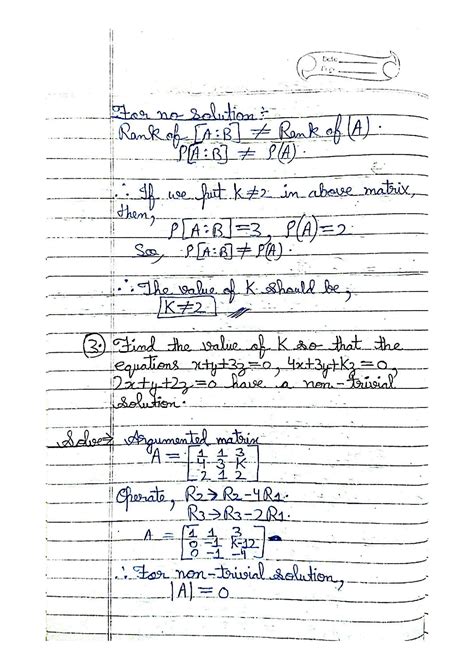 Date
Page
For no solution :-
Rank of [A:B] ≠ Rank of (A).
ρ[A:B] ≠ ρ(A).
∴ If we put K≠2 in above matrix,
then,
ρ[A:B]=3, ρ(A)=2
So, ρ[A:B]≠ρ(A).
∴ The value of K should be,
K≠2
3. Find the value of K so that the
equations x+y+3z=0, 4x+3y+Kz=0,
2x+y+2z=0 have a non-trivial
solution.
Solve⇒ Argumented matrix
A = [1 1 3
4 3 K
2 1 2]
Operate, R2→R2-4R1.
R3→R3-2R1.
A = [1 1 3
0 -1 K-12
0 -1 -4]
∴ For non-trivial solution,
|A|=0